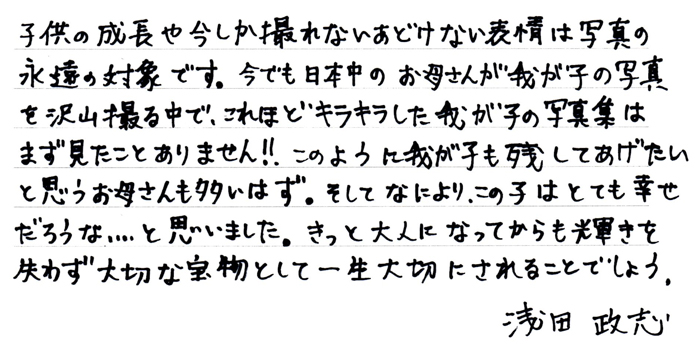 子供の成長や今しか撮れないあどけない表情は写真の
永遠の対象です。今でも日本中のお母さんが我が子の写真
を沢山撮る中で、これほどキラキラした我が子の写真集は
まず見たことありません!! このように我が子も残してあげたい
と思うお母さんも多いはず。そしてなにより、この子はとても幸せ
だろうな....と思いました。きっと大人になってからも輝きを
失わず大切な宝物として一生大切にされることでしょう。
浅田 政志